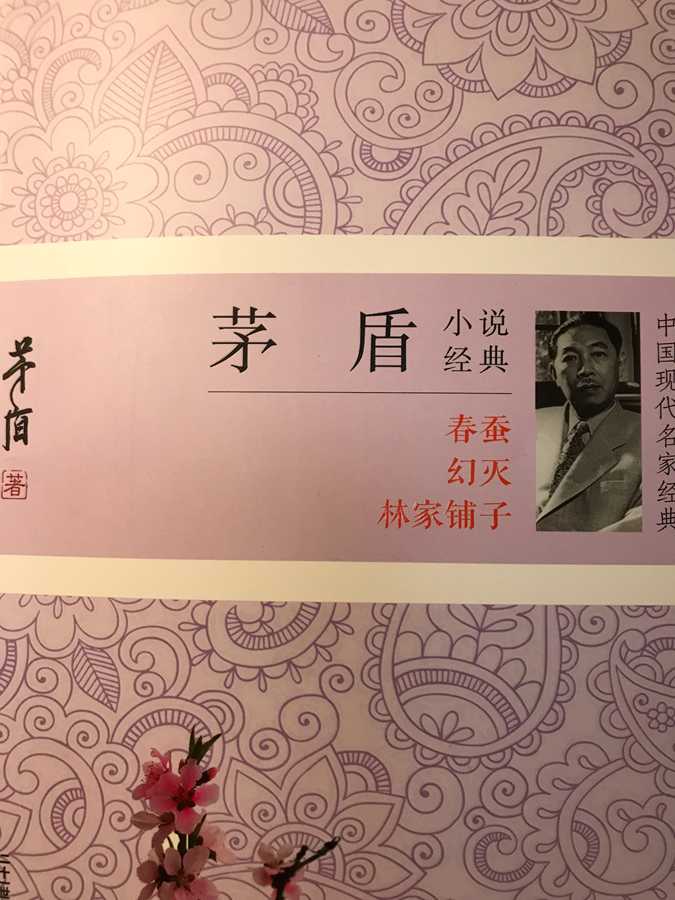 茅盾
小说
经典
春蚕
幻灭
林家铺子
中国现代名家经典
茅盾
著
二十世